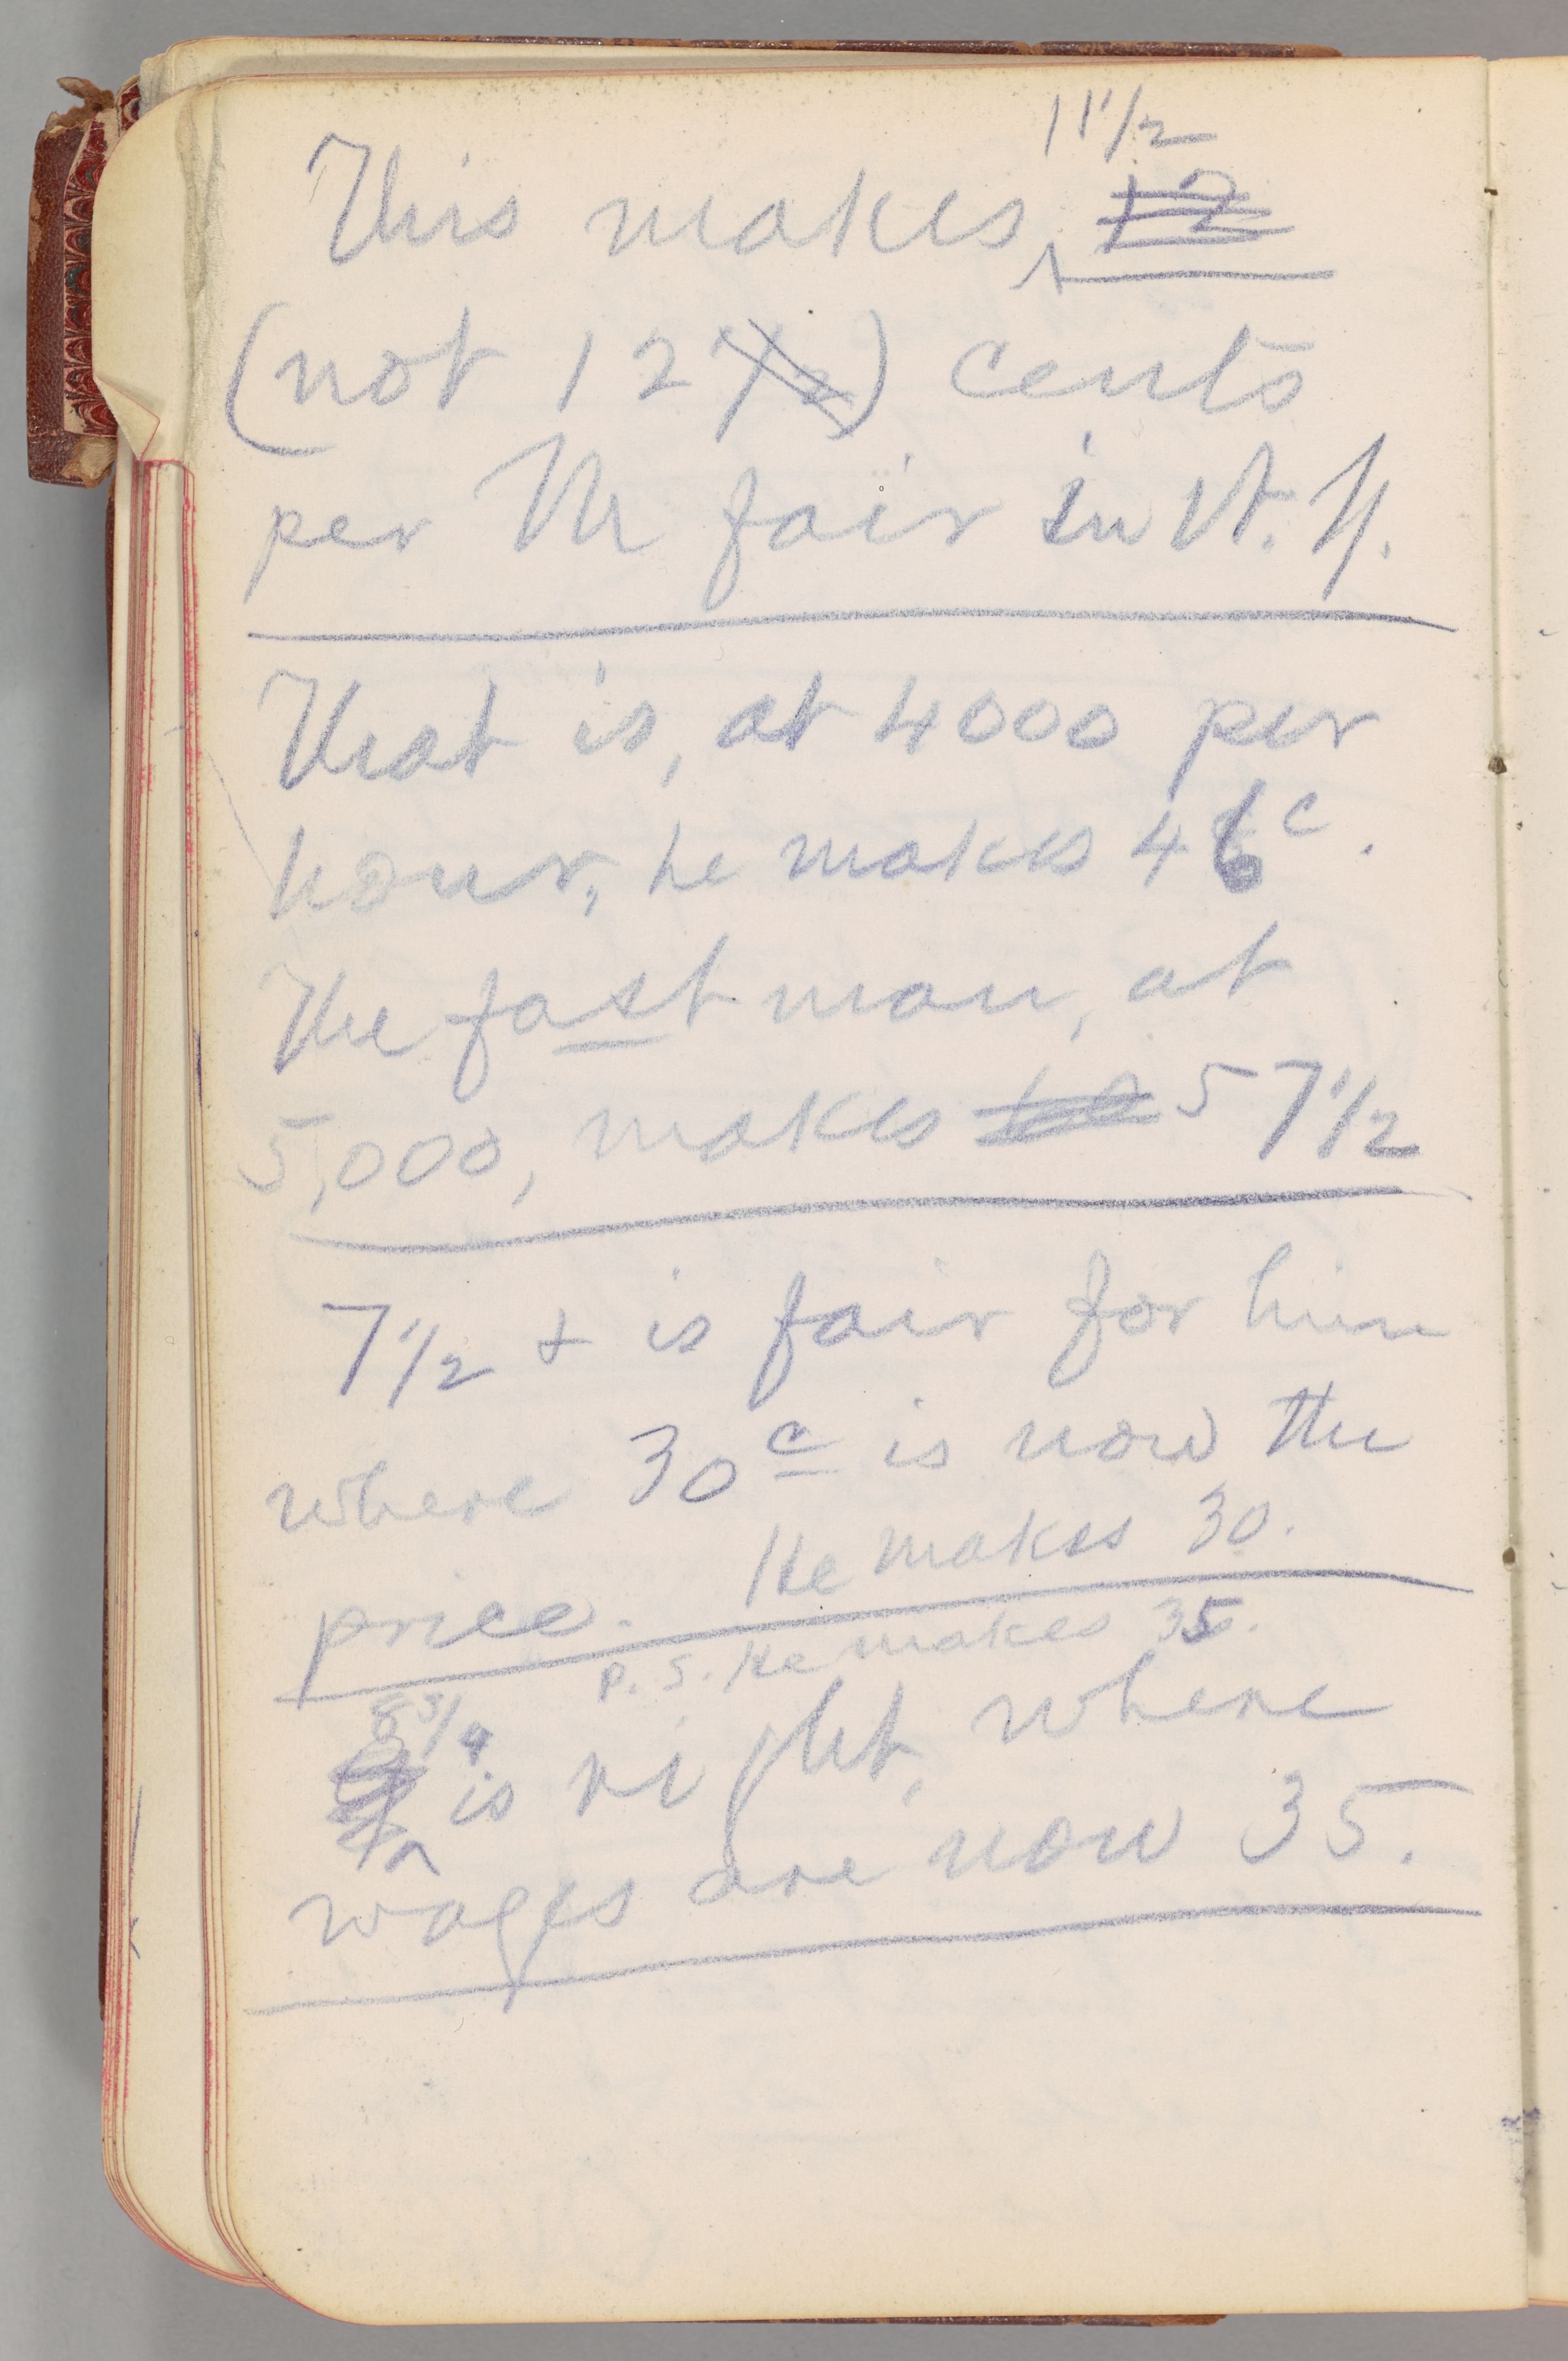 11 1/2
This makes ~~12~~
(not 12 ~~1/2~~) cents
per M fair in N. Y.
That is, at 4000 per
hour, he makes 46c.
The fast man, at
5,000, makes ~~60~~ 57 1/2
7 1/2 + is fair for him
where 30c is now the
price. He makes 30.
P. S. He makes 35.
8 3/4
is right, where
wages are now 35.